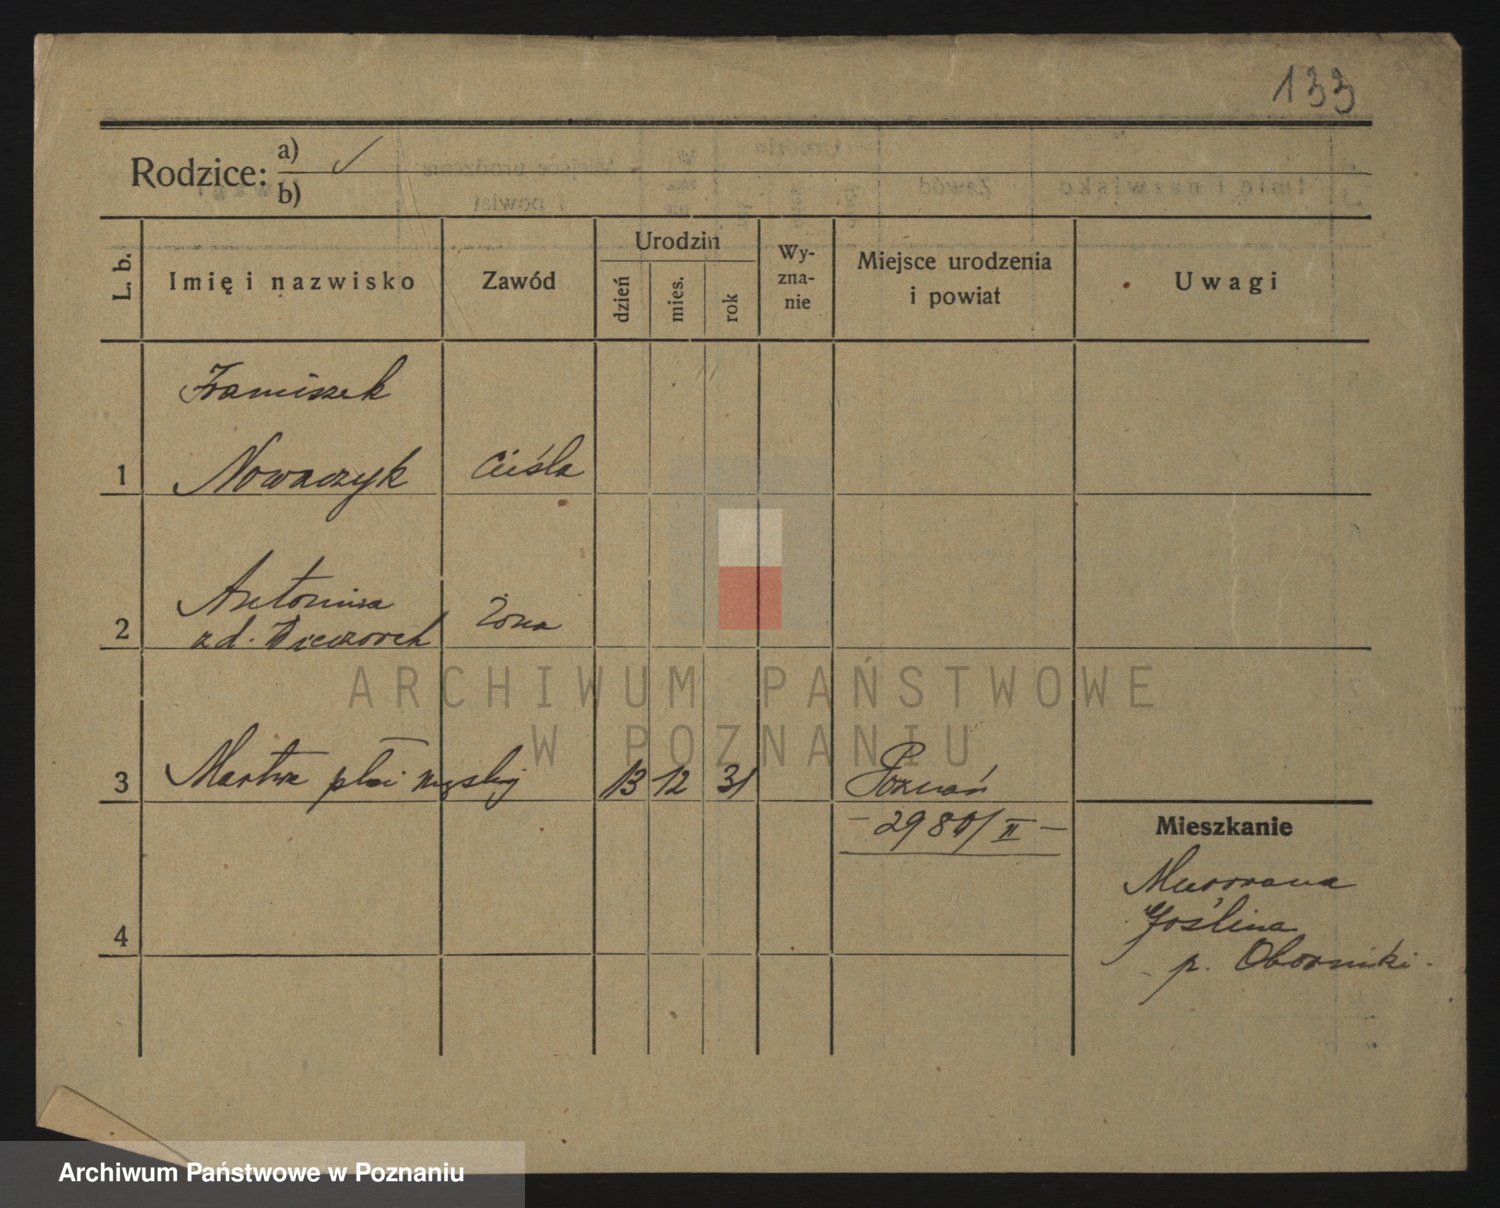 133
Rodzice:
a)
b)
L. b.
Imię i nazwisko
Zawód
Urodzin
dzień
mies.
rok
Wy-
zna-
nie
Miejsce urodzenia
i powiat
Uwagi
Franciszek
1 Nowaczyk Cieśla
Antonina
2 zd. Wieczorek żona
3 Martwe płci męskiej 13 12 31 Poznań
- 2980/II -
Mieszkanie
Murowana
Goślina
4
p. Oborniki.
ARCHIWUM PAŃSTWOWE
W POZNANIU
Archiwum Państwowe w Poznaniu